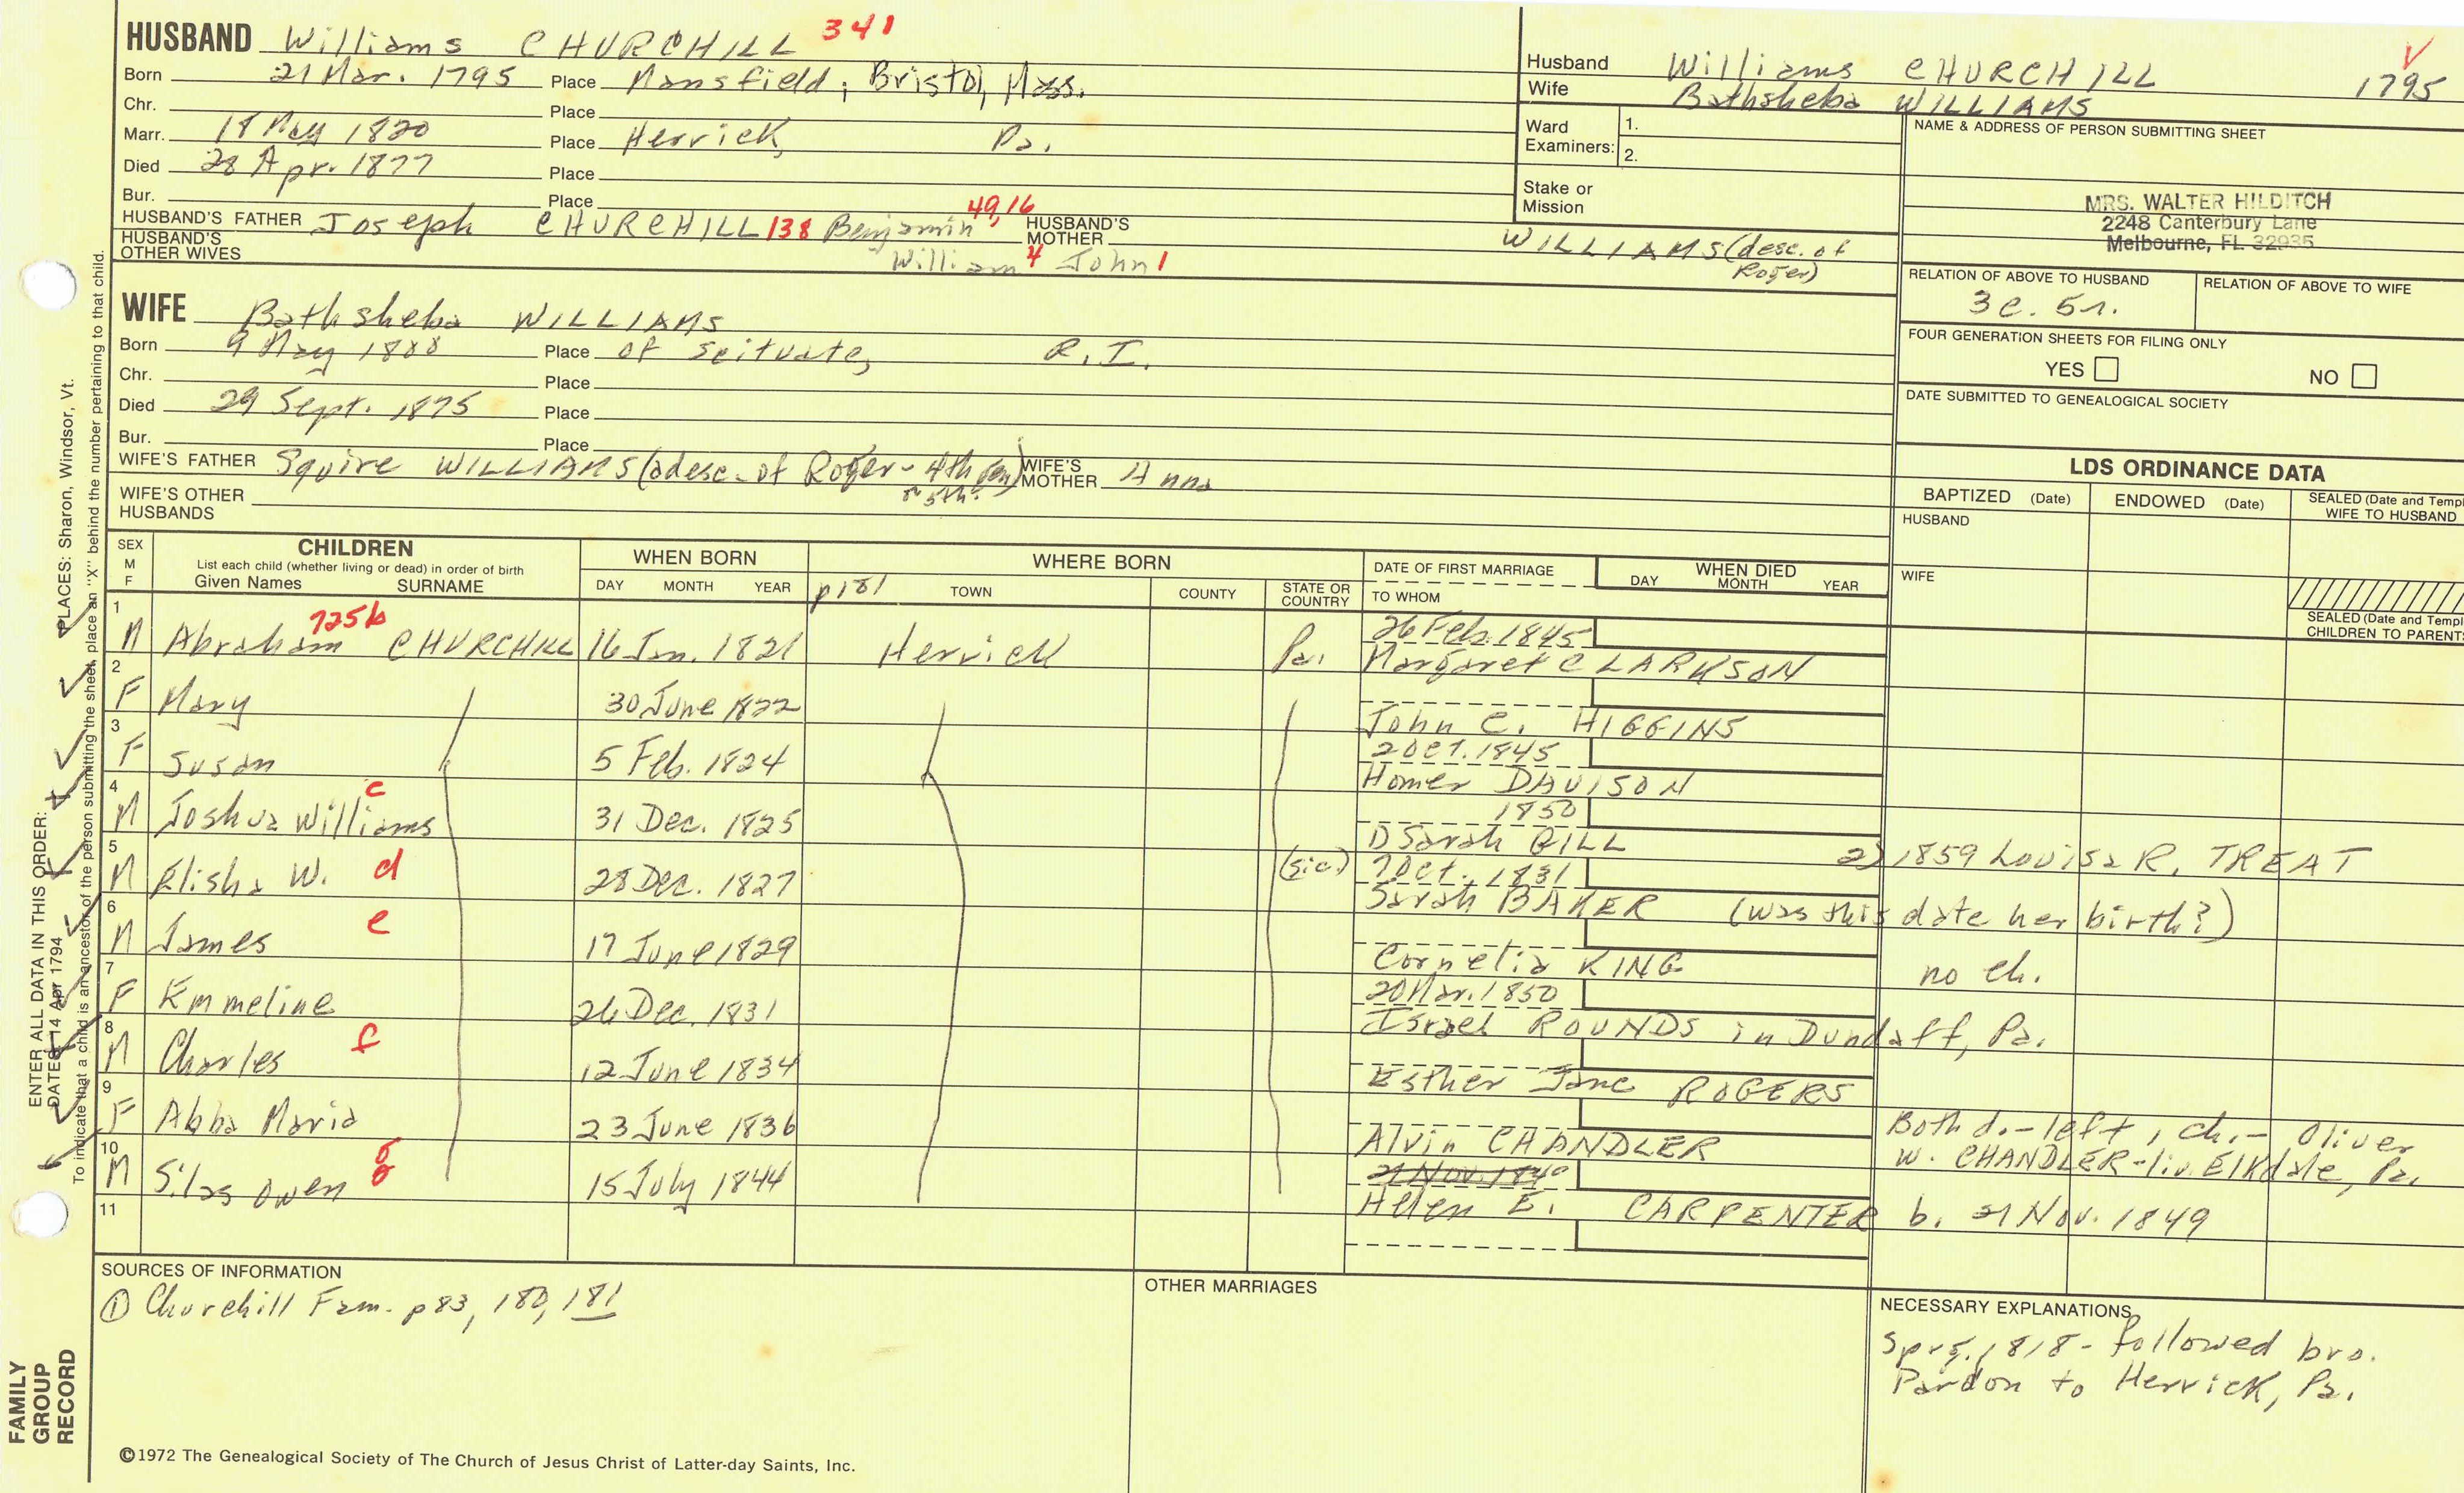 HUSBAND Williams CHURCHILL 341
Born 21 Mar. 1795 Place Mansfield, Bristol, Mass.
Chr. Place
Marr. 18 May 1820 Place Herrick, Pa.
Died 28 Apr. 1877 Place
Bur. Place
HUSBAND'S FATHER Joseph CHURCHILL 138 Benjamin 49, 16 HUSBAND'S MOTHER WILLIAMS (desc. of Roger)
HUSBAND'S OTHER WIVES William 4 John 1
WIFE Bathsheba WILLIAMS
Born 9 May 1800 Place of Scituate, R.I.
Chr. Place
Died 29 Sept. 1875 Place
Bur. Place
WIFE'S FATHER Squire WILLIAMS (a desc. of Roger - 4th gen) WIFE'S MOTHER Anna
or 5th?
WIFE'S OTHER HUSBANDS
Husband Williams CHURCHILL 1795
Wife Bathsheba WILLIAMS
Ward Examiners: 1.
2.
Stake or Mission
NAME & ADDRESS OF PERSON SUBMITTING SHEET
MRS. WALTER HILDITCH
2248 Canterbury Lane
Melbourne, FL 32935
RELATION OF ABOVE TO HUSBAND RELATION OF ABOVE TO WIFE
3c. 5r.
FOUR GENERATION SHEETS FOR FILING ONLY
YES NO
DATE SUBMITTED TO GENEALOGICAL SOCIETY
LDS ORDINANCE DATA
BAPTIZED (Date) ENDOWED (Date) SEALED (Date and Templ
WIFE TO HUSBAND
HUSBAND
WIFE
SEALED (Date and Templ
CHILDREN TO PARENT
SEX M F CHILDREN WHEN BORN WHERE BORN DATE OF FIRST MARRIAGE WHEN DIED
List each child (whether living or dead) in order of birth
Given Names SURNAME DAY MONTH YEAR p181 TOWN COUNTY STATE OR COUNTRY TO WHOM DAY MONTH YEAR
1 M Abraham 725b CHURCHILL 16 Jan. 1821 Herrick Pa. 26 Feb. 1845
Margaret CLARKSON
2 F Mary 30 June 1822
John C. HIGGINS
3 F Susan 5 Feb. 1824 2 Oct. 1845
Homer DAVISON
4 M Joshua Williams c 31 Dec. 1825 1850
1) Sarah GILL 2) 1859 Louisa R. TREAT
5 M Elisha W. d 28 Dec. 1827 (sic) 7 Oct. 1831
Sarah BAKER (was this date her birth?)
6 M James e 17 June 1829
Cornelia KING no ch.
7 F Emmeline 26 Dec. 1831 20 Mar. 1850
Israel ROUNDS in Dundaff, Pa.
8 M Charles f 12 June 1834
Esther Jane ROGERS
9 F Abba Maria 23 June 1836
Alvin CHANDLER Both d. - left 1 ch. - Oliver
W. CHANDLER - liv. Elkdale, Pa.
10 M Silas Owen g 15 July 1844 21 Nov. 1849
Helen E. CARPENTER b. 21 Nov. 1849
11
SOURCES OF INFORMATION
① Churchill Fam. p 83, 180, 181
OTHER MARRIAGES
NECESSARY EXPLANATIONS
Sprg. 1818 - followed bro.
Pardon to Herrick, Pa.
ENTER ALL DATA IN THIS ORDER:
DATES: 14 Apr 1794 PLACES: Sharon, Windsor, Vt.
To indicate that a child is an ancestor of the person submitting the sheet, place an "X" behind the number pertaining to that child.
FAMILY
GROUP
RECORD
©1972 The Genealogical Society of The Church of Jesus Christ of Latter-day Saints, Inc.